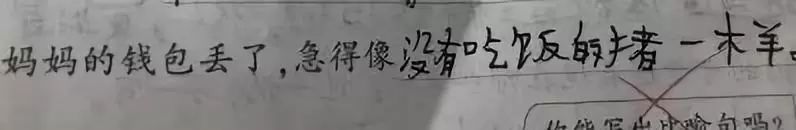 妈妈的钱包丢了，急得像没有吃饭的猪一样。
你能写出比喻句吗？